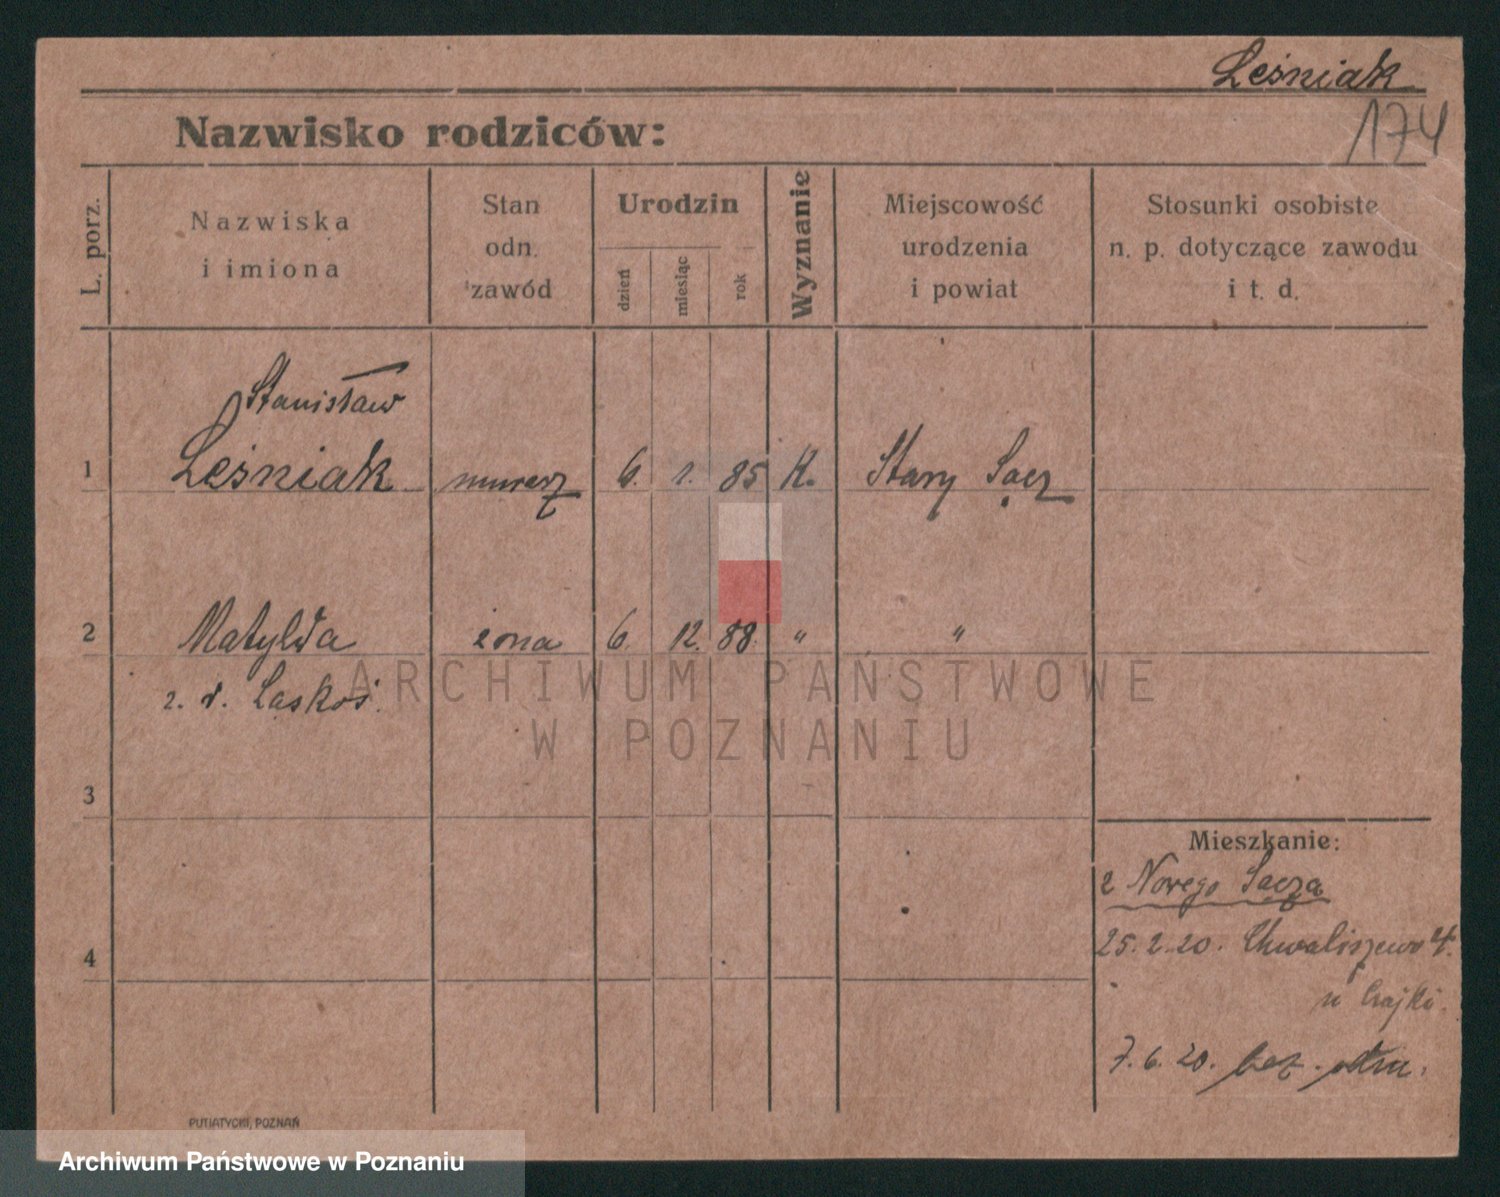 Leśniak
174
Nazwisko rodziców:
L. porz.
Nazwiska
i imiona
Stan
odn.
zawód
Urodzin
dzień
miesiąc
rok
Wyznanie
Miejscowość
urodzenia
i powiat
Stosunki osobiste
n. p. dotyczące zawodu
i t. d.
Stanisław
1 Leśniak murarz 6. 1. 85 K. Stary Sącz
2 Matylda żona 6. 12. 88. " "
z. d. Laskoś
ARCHIWUM PAŃSTWOWE
W POZNANIU
3
Mieszkanie:
z Nowego Sącza
4
25.2.20. Chwaliszewo 4.
u
7.6.20. bez.
PUTIATYCKI, POZNAŃ
Archiwum Państwowe w Poznaniu